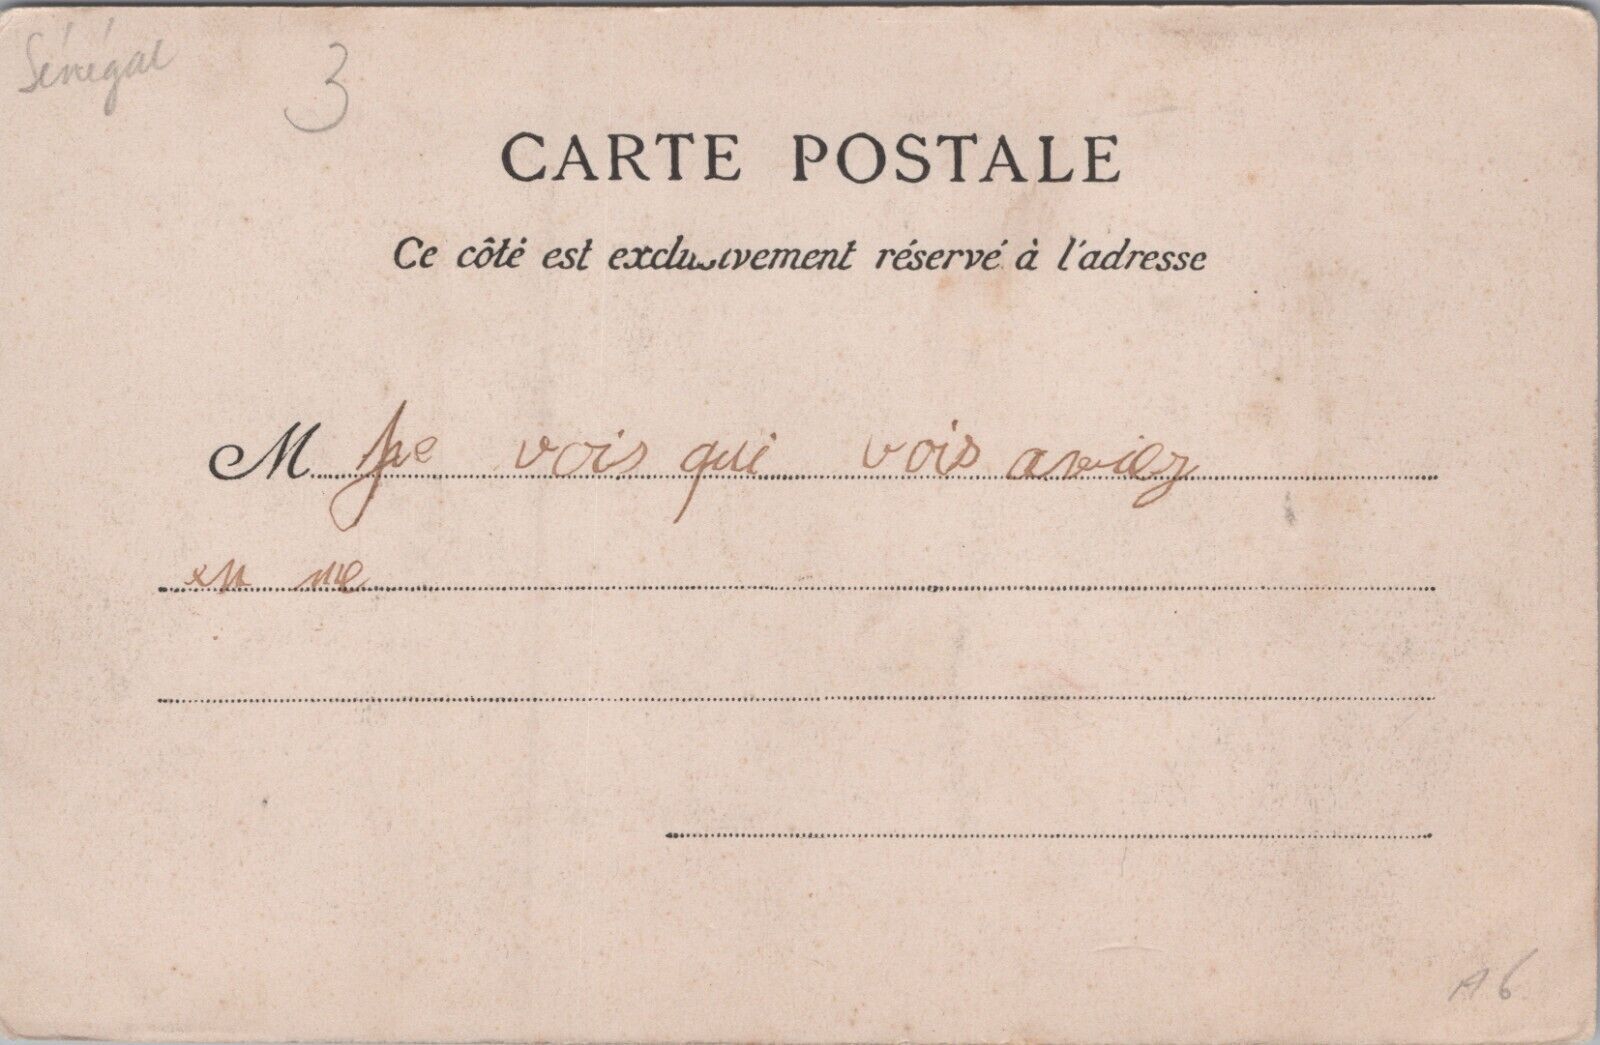 Sénégal 3
CARTE POSTALE
Ce côté est exclusivement réservé à l'adresse
M Je vois qui vois aviez
en me
A6